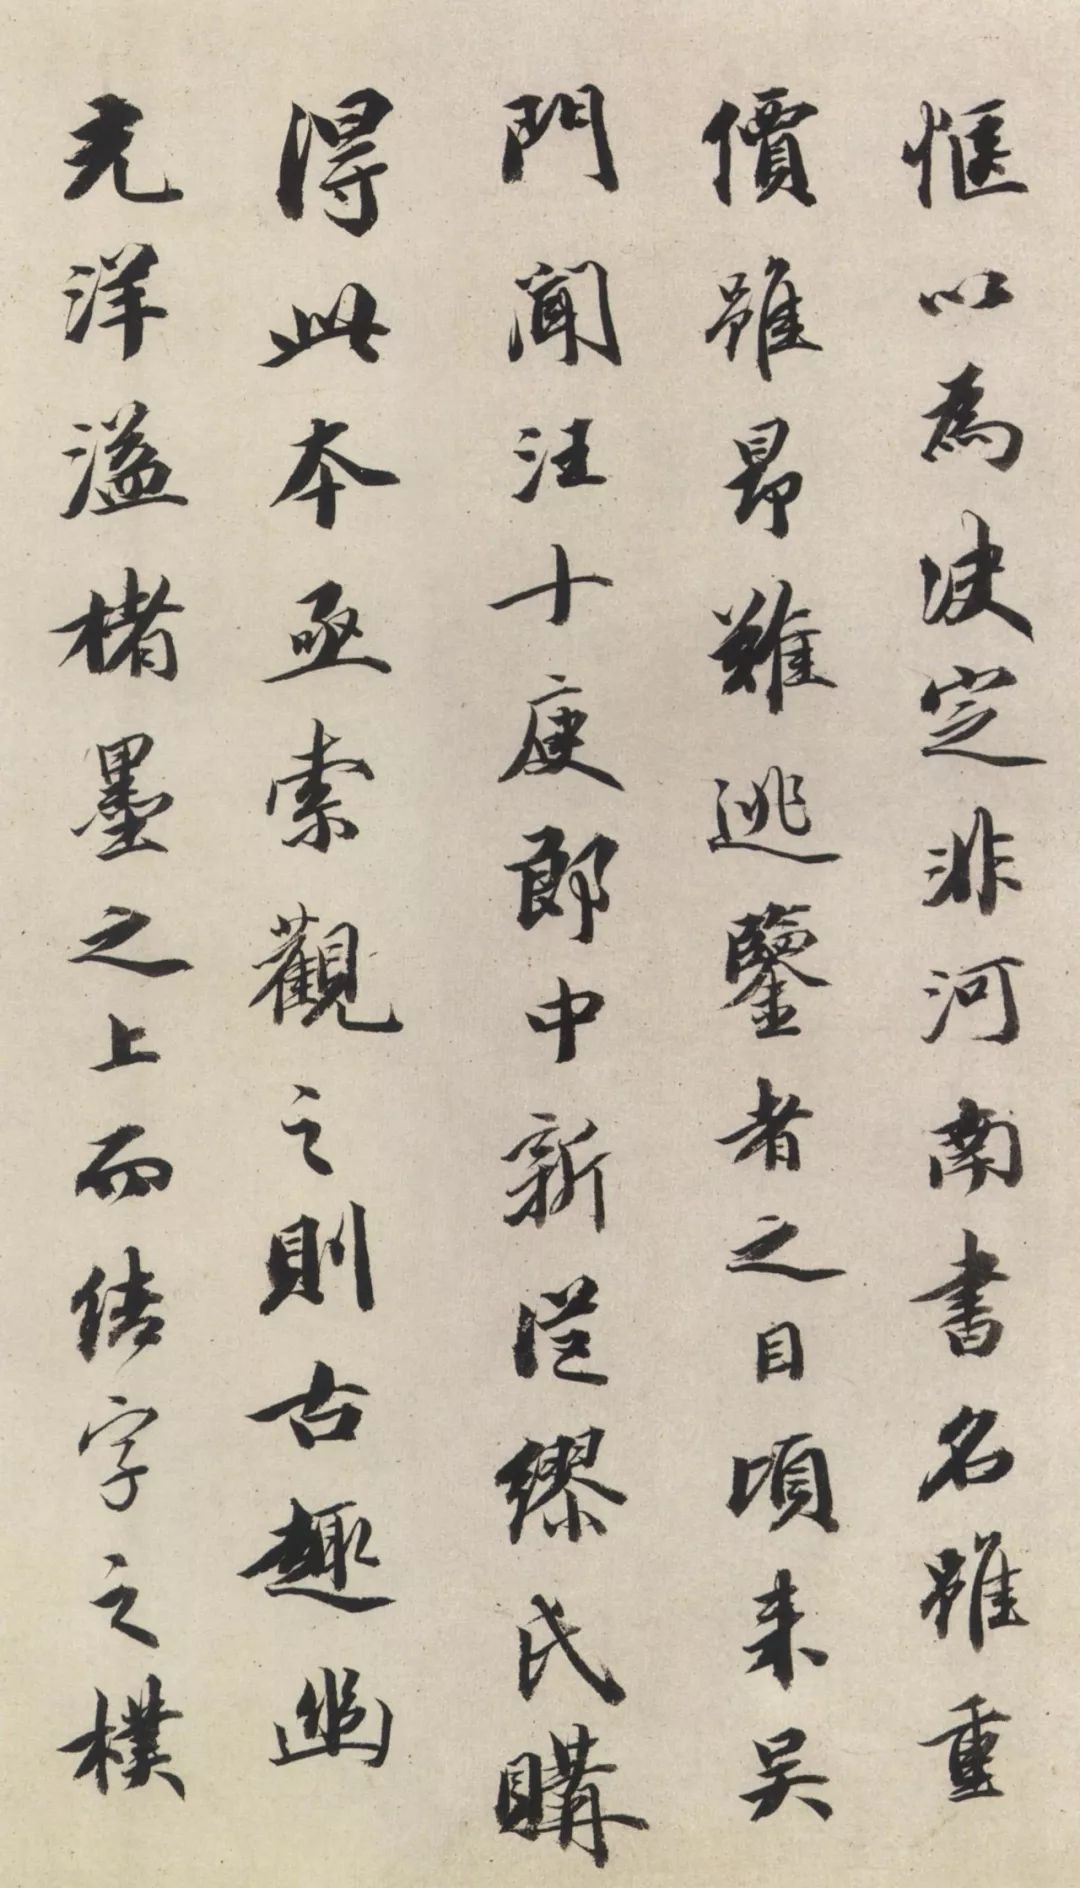 愜以為決定非河南書名雖重
價雖昂難逃鑒者之目頃来吴
門聞汪十庚郎中新從繆氏購
得此本亟索觀之則古趣幽
光洋溢楮墨之上而结字之樸